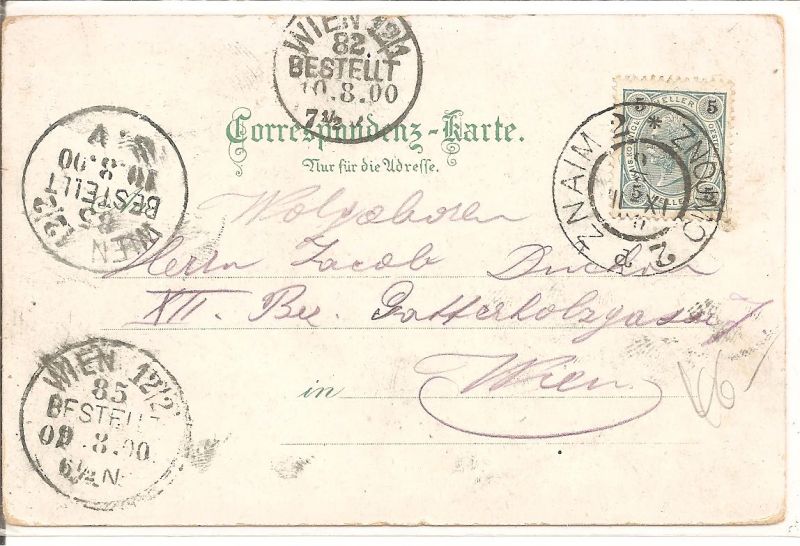 WIEN 12/1
82
BESTELLT
10.8.00
7½
WIEN 12/2
85
BESTELLT
10.8.00
V
Correspondenz-Karte.
Nur für die Adresse.
5 HELLER 5
5 5
ZNAIM 2 * ZNOJMO 2
Wolgeboren
Herrn Jacob
XII. Bez. Gatterholzgasse 7.
in Wien
WIEN 12/2
85
BESTELLT
09.8.00
6½N